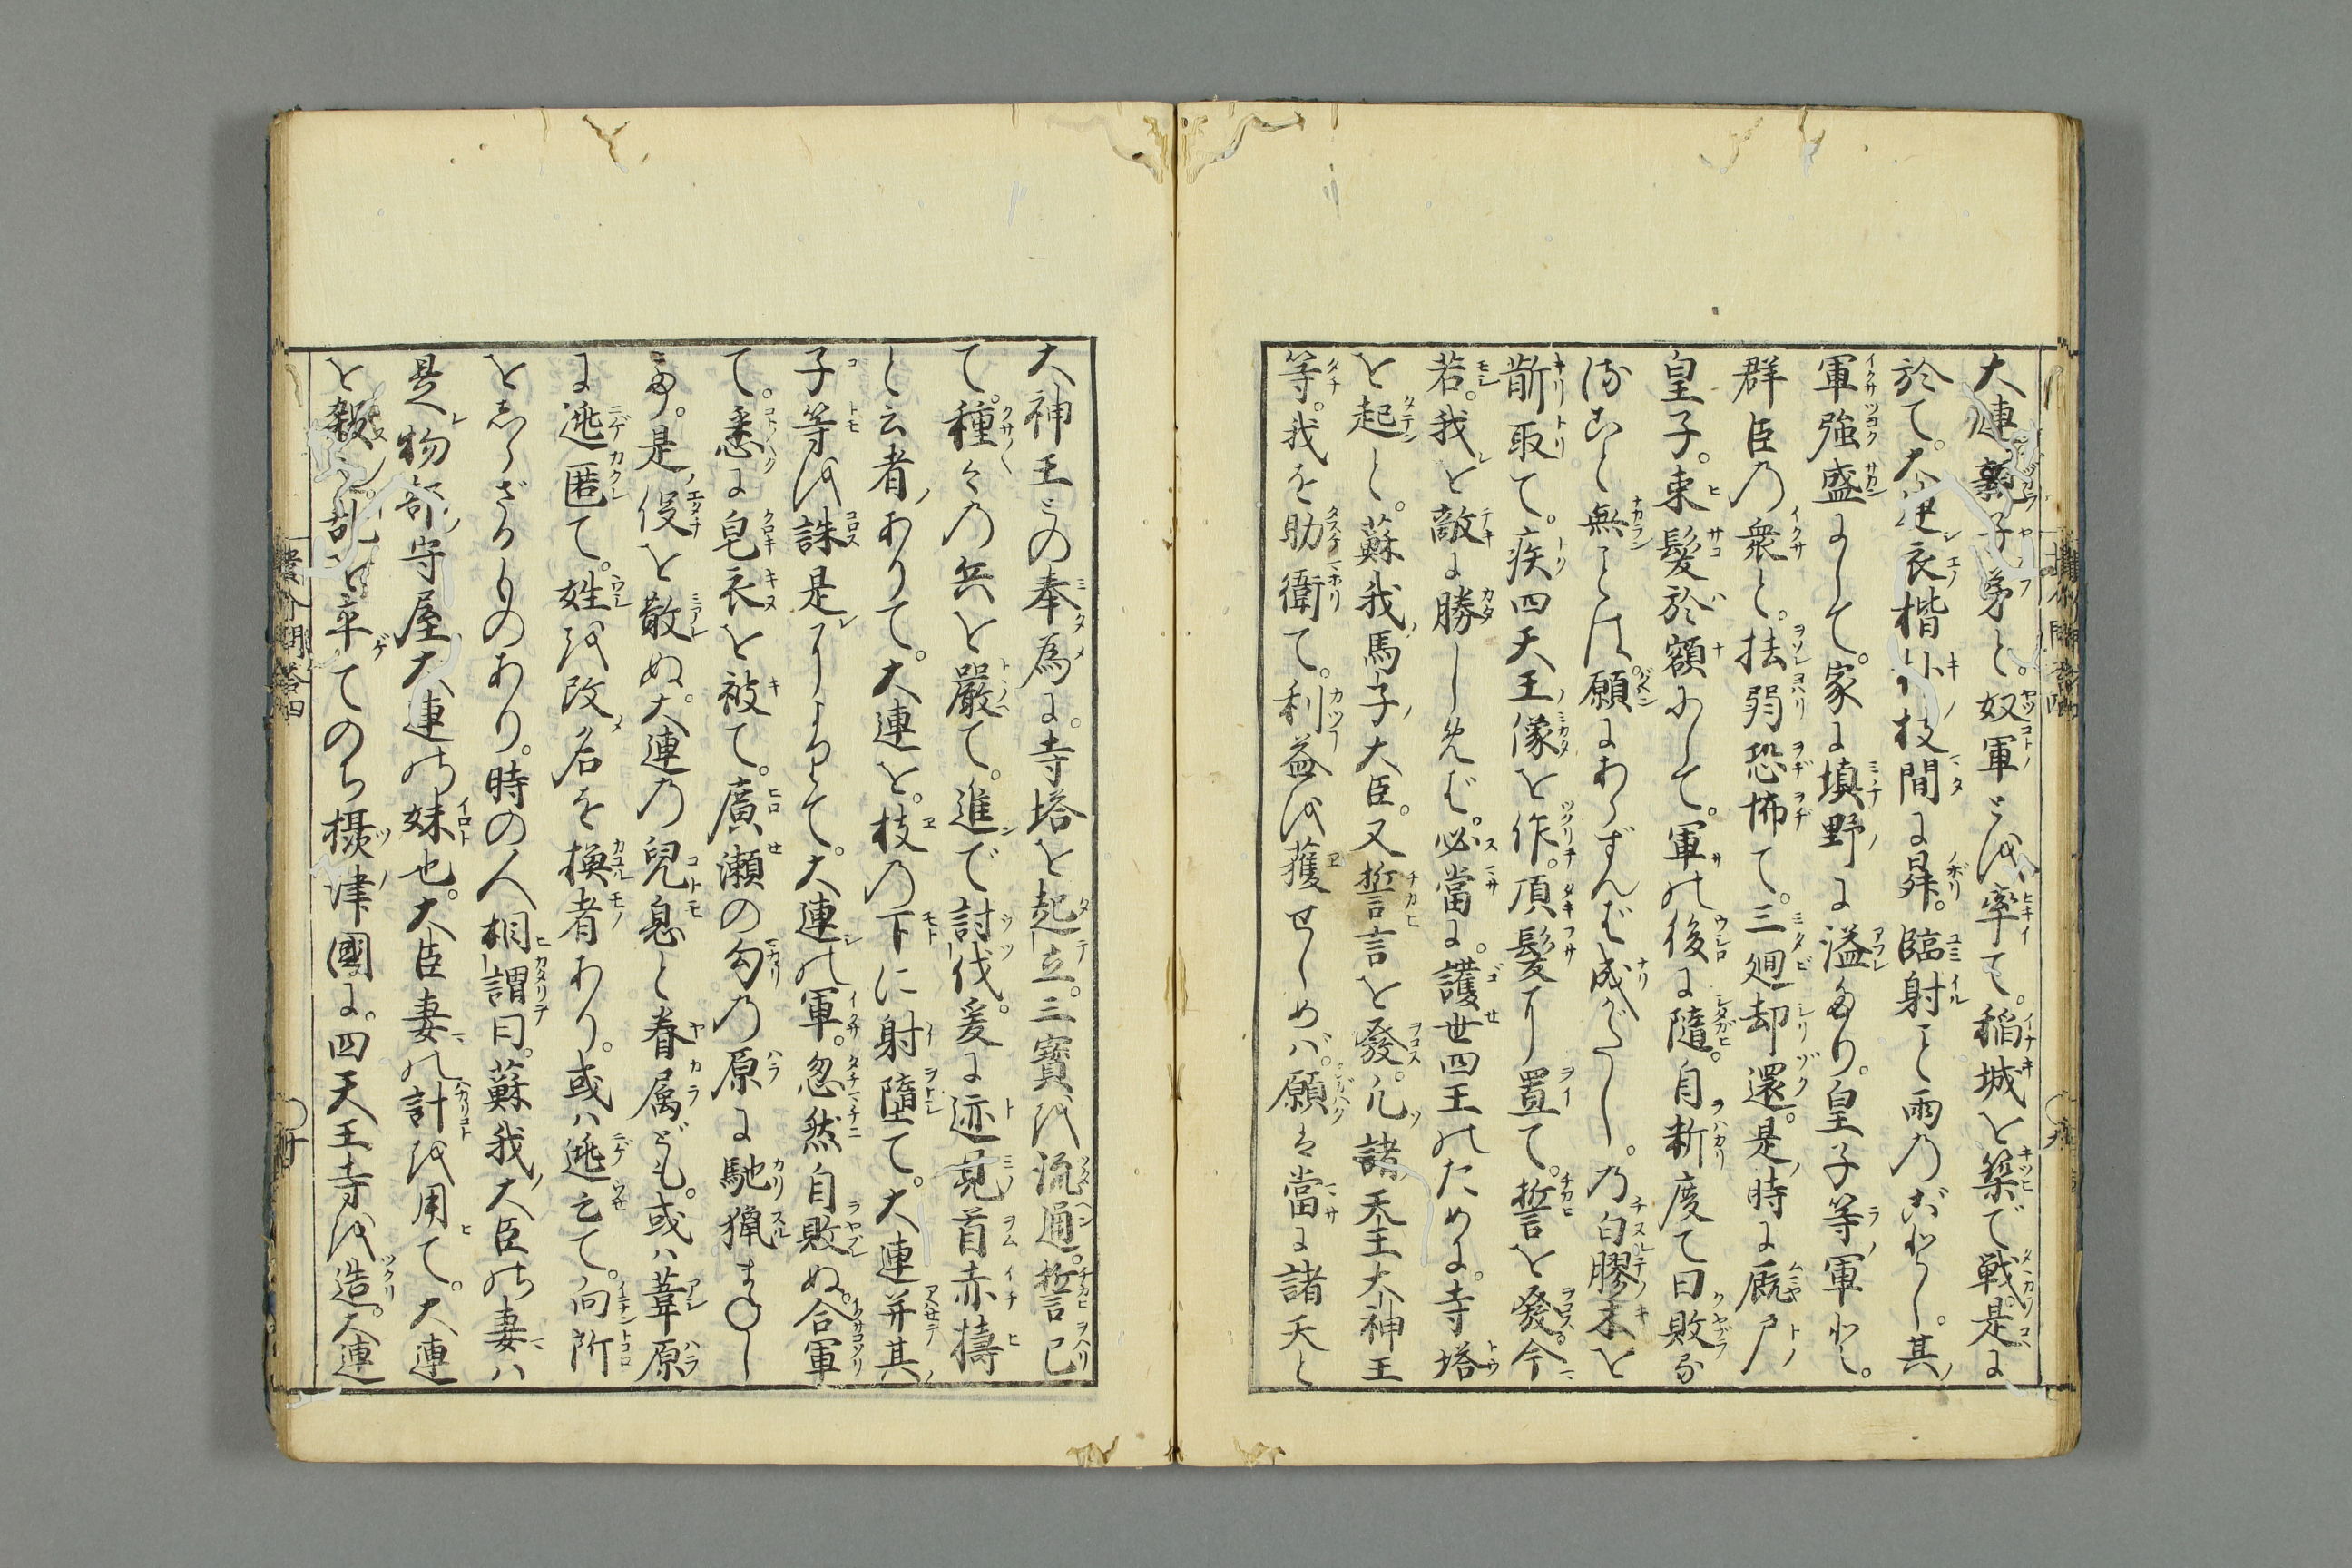 大連親子弟と。奴軍とを率て。稲城を築で戦。是に
於て。大連衣楷朴枝間に昇。臨射こと雨のごとし。其
軍強盛にして。家に填野に溢たり。皇子等軍と。
群臣の衆と。怯弱恐怖て。三廻却還。是時に厩戸
皇子。束髪於額にして。軍の後に随。自忖度て曰敗な
ること無らんは願にあらずんば成がたし。乃白膠木を
斮取て。疾四天王像を作。頂髪に置て。誓を発。今
若。我を敵に勝しめば。必當に。護世四王のために。寺塔
を起と。蘇我馬子大臣。又誓言を發。凡諸天王大神王
等。我を助衛て。利益を獲せしめバ。願は當に諸天と
大神王との奉為に。寺塔を起立。三寳を流通。誓已
て。種々の兵を嚴て。進で討伐。爰に迹見首赤檮
と云者ありて。大連を。枝の下に射墮て。大連并其
子等を誅是によりて。大連の軍。忽然自敗ぬ。合軍
て。悉に皂衣を被て。廣瀬の勾の原に馳猟まねし
たり。是役を散ぬ。大連の兒息と眷属ども。或ハ葦原
に逃匿て。姓を改名を換者あり。或ハ逃亡て。向所
をしらざるものあり。時の人相謂曰。蘇我大臣の妻ハ
是物部守屋大連の妹也。大臣妻の計を用て。大連
を殺こと。乱を平てのち摂津國に。四天王寺を造。大連